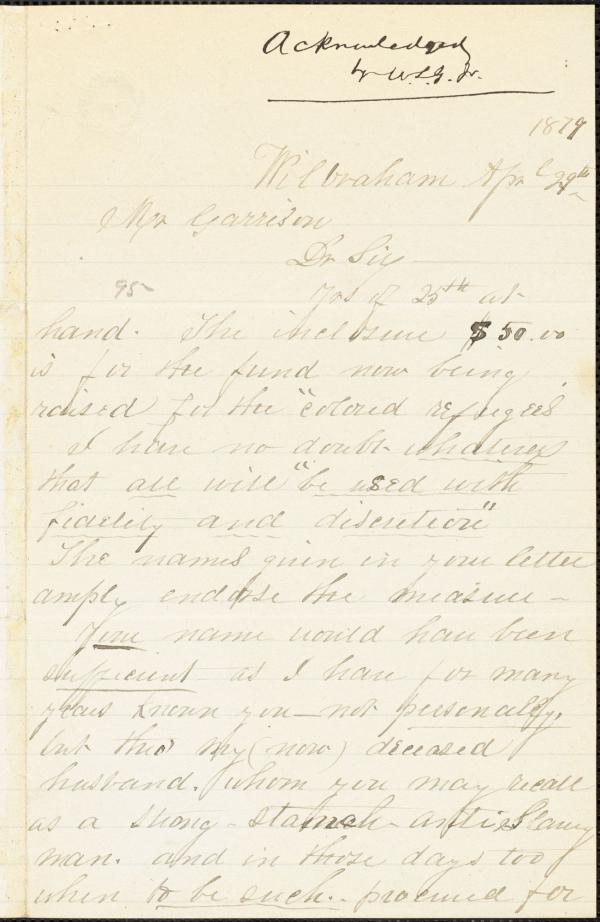 Acknowledged
by W.L.G. Jr.
1879
Wilbraham Apr 29th
Mr Garrison
Dr Sir
95
Yrs of 25th at
hand. The inclosure $50.00
is for the fund now being
raised for the "colored refugees
I have no doubt whatever
that all will "be used with
fidelity and discretion"
The names given in your letter
amply endorse the measure -
Your name would have been
sufficient as I have for many
years known you - not personally,
but thro my (now) deceased
husband. whom you may recall
as a strong - stanch - anti Slavery
man. and in those days too
when to be such. procured for